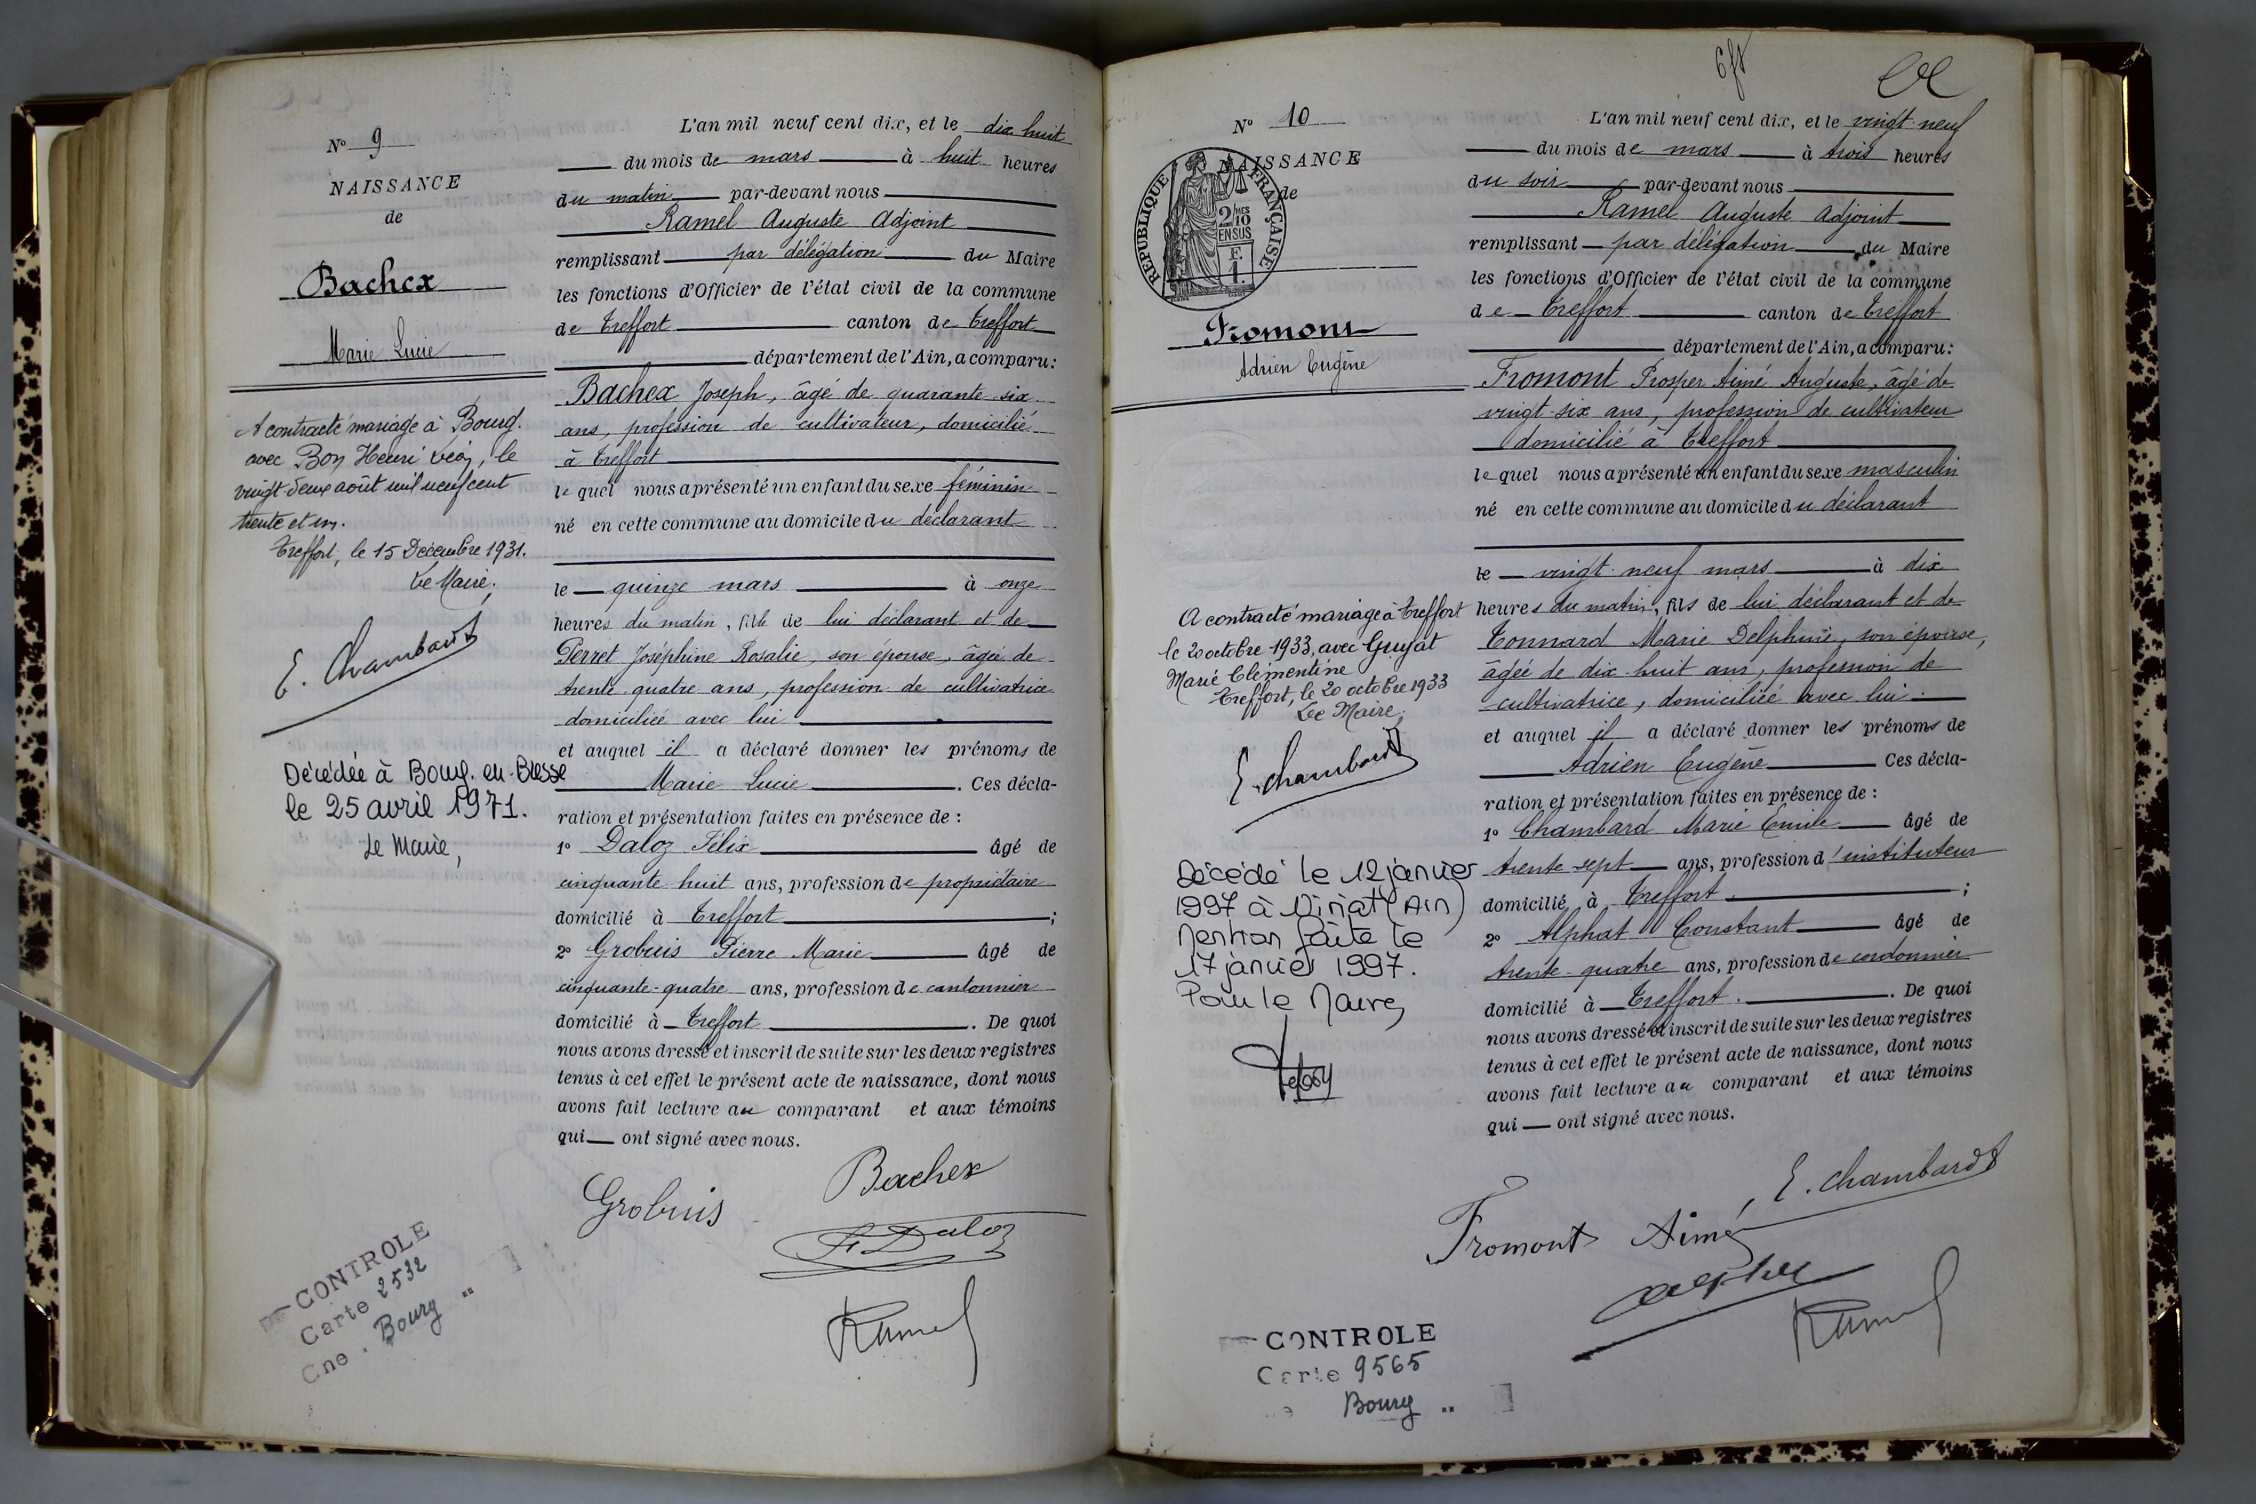 Nº 9
NAISSANCE
de
Bachex
Marie Lucie
A contracté mariage à Bourg.
avec Bon Henri Léon, le
vingt-deux août mil neuf cent
trente et un.
Treffort, le 15 Décembre 1931.
Le Maire,
E. Chambard
Décédée à Bourg-en-Bresse
le 25 avril 1971.
Le Maire,
CONTROLE
Carte 2532
Cne. Bourg
L'an mil neuf cent dix, et le dix huit
du mois de mars à huit heures
du matin par-devant nous
Ramel Auguste Adjoint
remplissant par délégation du Maire
les fonctions d'Officier de l'état civil de la commune
de Treffort canton de Treffort
département de l'Ain, a comparu :
Bachex Joseph, âgé de quarante-six
ans, profession de cultivateur, domicilié
à Treffort
lequel nous a présenté un enfant du sexe féminin
né en cette commune au domicile du déclarant
le quinze mars à onze
heures du matin, fille de lui déclarant et de
Perret Joséphine Rosalie, son épouse, âgée de
trente-quatre ans, profession de cultivatrice
domiciliée avec lui
et auquel il a déclaré donner les prénoms de
Marie Lucie. Ces décla-
ration et présentation faites en présence de :
1º Daloz Félix âgé de
cinquante huit ans, profession de propriétaire
domicilié à Treffort ;
2º Grobuis Pierre Marie âgé de
cinquante-quatre ans, profession de cantonnier
domicilié à Treffort. De quoi
nous avons dressé et inscrit de suite sur les deux registres
tenus à cet effet le présent acte de naissance, dont nous
avons fait lecture au comparant et aux témoins
qui ont signé avec nous.
Bachex
Grobuis
F. Daloz
Ramel
Nº 10
NAISSANCE
de
REPUBLIQUE FRANÇAISE
2/10 mes
EN SUS
F.
1.
Fromont
Adrien Eugène
A contracté mariage à Treffort
le 20 octobre 1933, avec Guyat
Marie Clémentine
Treffort, le 20 octobre 1933
Le Maire,
E. Chambard
Décédé le 12 janvier
1997 à Viriat (Ain)
Mention faite le
17 janvier 1997.
Pour le Maire,
CONTROLE
Carte 9565
Bourg
L'an mil neuf cent dix, et le vingt-neuf
du mois de mars à trois heures
du soir par-devant nous
Ramel Auguste Adjoint
remplissant par délégation du Maire
les fonctions d'Officier de l'état civil de la commune
de Treffort canton de Treffort
département de l'Ain, a comparu :
Fromont Prosper Aimé Auguste, âgé de
vingt-six ans, profession de cultivateur
domicilié à Treffort
lequel nous a présenté un enfant du sexe masculin
né en cette commune au domicile du déclarant
le vingt-neuf mars à dix
heures du matin, fils de lui déclarant et de
Tonnard Marie Delphine, son épouse,
âgée de dix-huit ans, profession de
cultivatrice, domiciliée avec lui.
et auquel il a déclaré donner les prénoms de
Adrien Eugène Ces décla-
ration et présentation faites en présence de :
1º Chambard Marie Emile âgé de
trente-sept ans, profession d'instituteur
domicilié à Treffort. ;
2º Alphat Constant âgé de
trente-quatre ans, profession de cordonnier
domicilié à Treffort. De quoi
nous avons dressé et inscrit de suite sur les deux registres
tenus à cet effet le présent acte de naissance, dont nous
avons fait lecture au comparant et aux témoins
qui ont signé avec nous.
E. Chambard
Fromont Aimé
Ramel